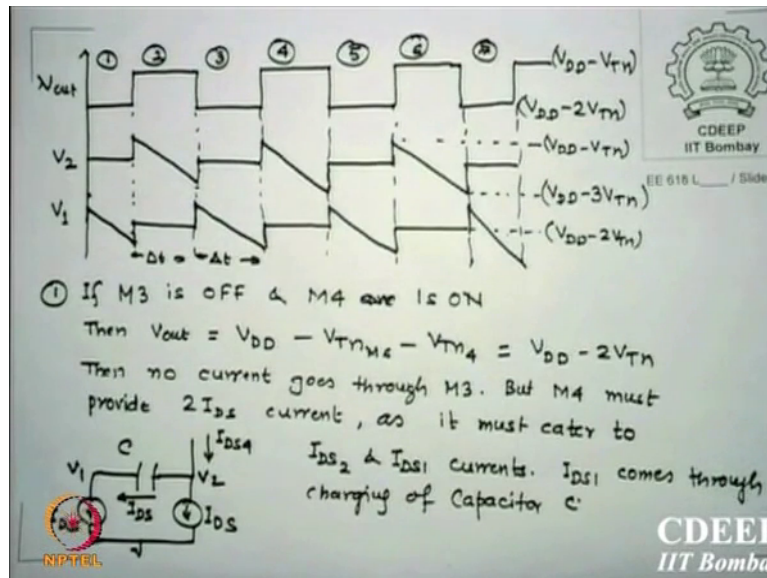 ① ② ③ ④ ⑤ ⑥ ⑦
Vout
(VDD-VTn)
(VDD-2VTn)
V2
(VDD-VTn)
(VDD-3VTn)
V1
(VDD-2VTn)
Δt Δt
CDEEP
IIT Bombay
EE 618 L____ / Slide
① If M3 is OFF & M4 is ON
Then Vout = VDD - VTnM6 - VTn4 = VDD - 2VTn
Then no current goes through M3. But M4 must
provide 2IDS current, as it must cater to
IDS2 & IDS1 currents. IDS1 comes through
charging of Capacitor C
C
IDS4
V1
V2
IDS
IDS
NPTEL
CDEEP
IIT Bombay